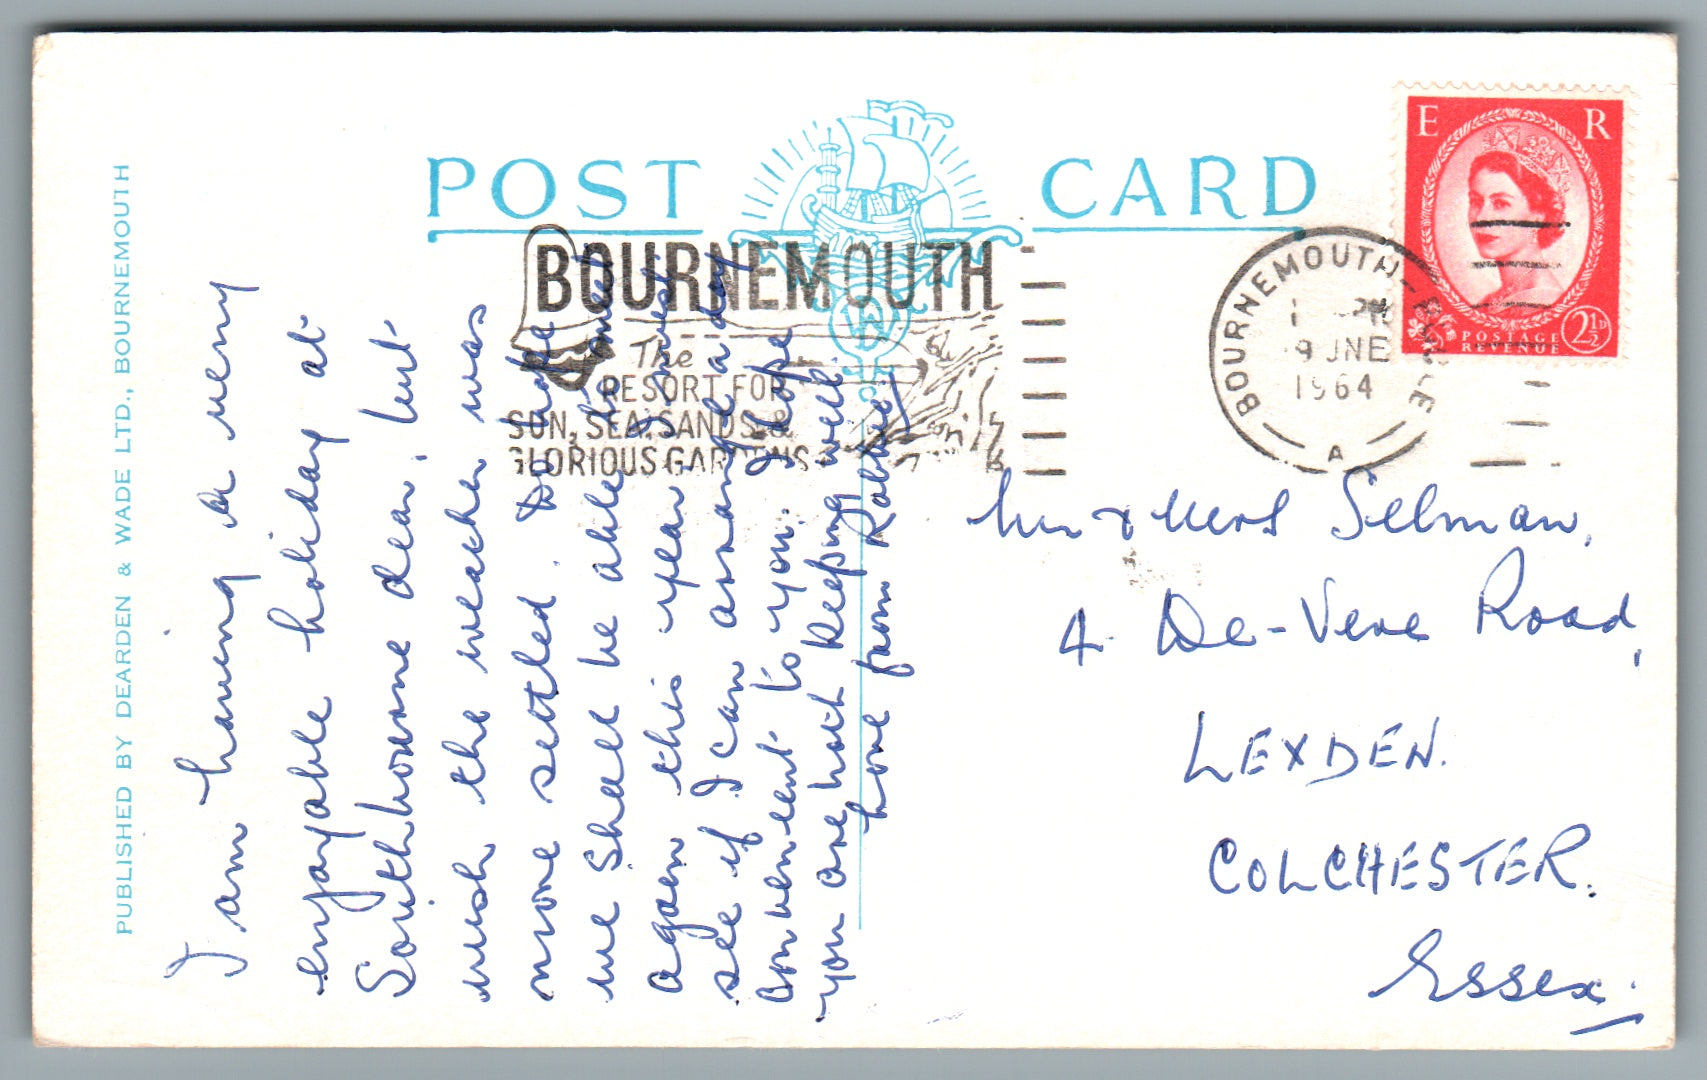 PUBLISHED BY DEARDEN & WADE LTD., BOURNEMOUTH
POST CARD
E R
POSTAGE
REVENUE
2½D
BOURNEMOUTH
The
RESORT FOR
SUN, SEA, SANDS &
GLORIOUS GARDENS
BOURNEMOUTH-POOLE
9 JNE
1964
A
I am having a very
enjoyable holiday at
Southbourne dear, but
wish the weather was
more settled. Do hope
we shall be able to meet
again this year I must
see if I can arrange a day
convenient to you. I hope
you are both keeping well.
love from
Mr & Mrs Selman,
4 De-Vere Road,
LEXDEN.
COLCHESTER.
Essex.